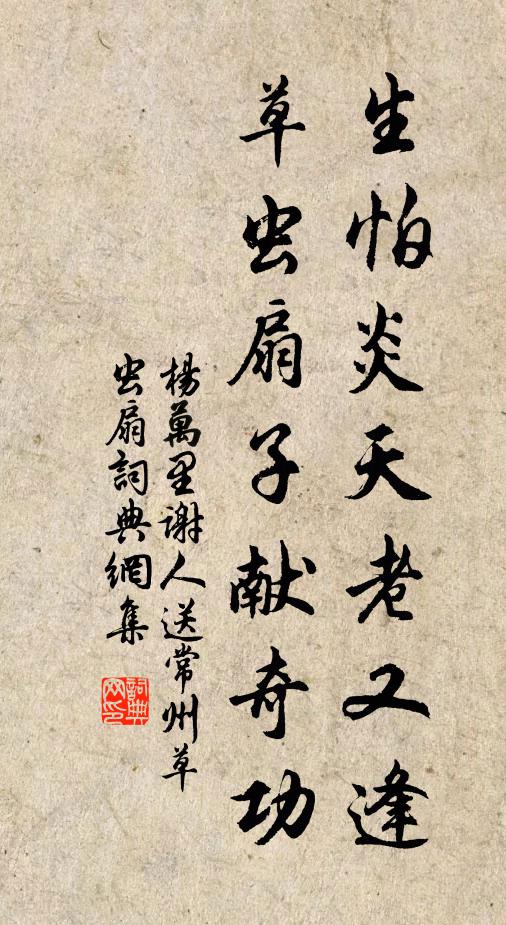 生怕炎天老又逢
草虫扇子献奇功
楊萬里謝人送常州草
虫扇詞典網集
詞典网印